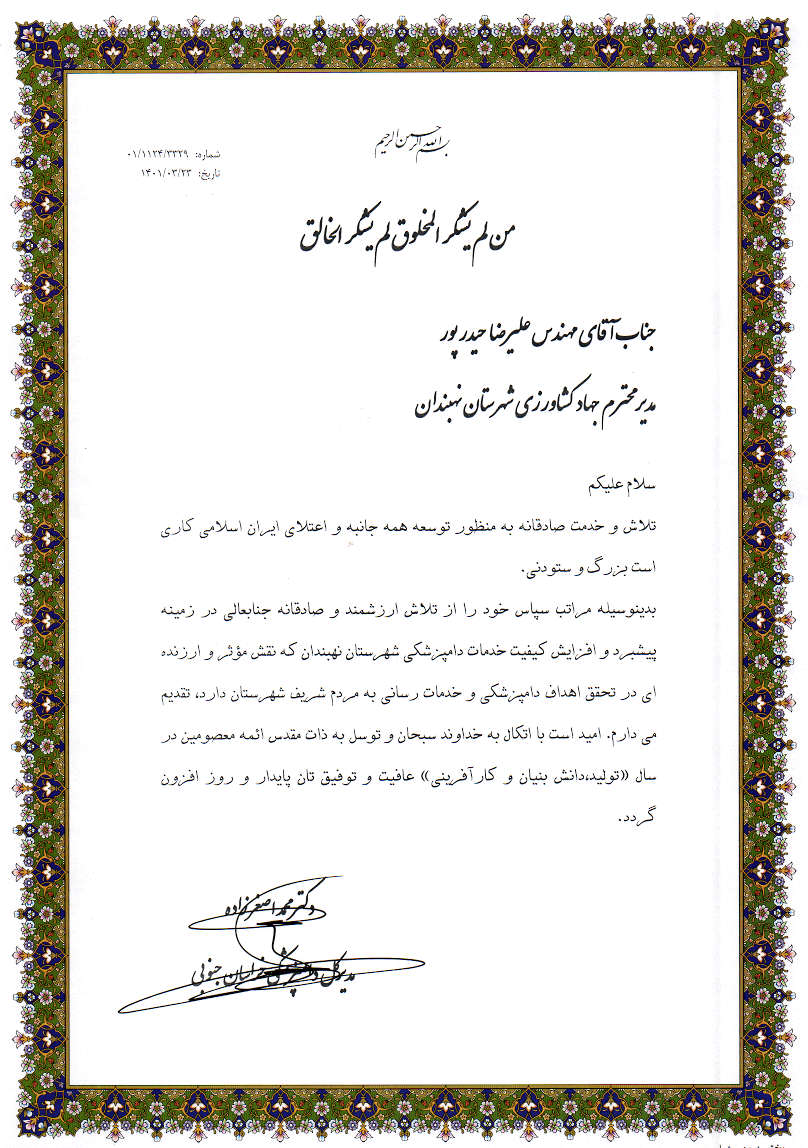 بسم الله الرحمن الرحیم
شماره: ۰۱/۱۱۲۴/۳۳۲۹
تاریخ: ۱۴۰۱/۰۳/۲۳
من لم یشکر المخلوق لم یشکر الخالق
جناب آقای مهندس علیرضا حیدرپور
مدیر محترم جهاد کشاورزی شهرستان نهبندان
سلام علیکم
تلاش و خدمت صادقانه به منظور توسعه همه جانبه و اعتلای ایران اسلامی کاری
است بزرگ و ستودنی.
بدینوسیله مراتب سپاس خود را از تلاش ارزشمند و صادقانه جنابعالی در زمینه
پیشبرد و افزایش کیفیت خدمات دامپزشکی شهرستان نهبندان که نقش مؤثر و ارزنده
ای در تحقق اهداف دامپزشکی و خدمات رسانی به مردم شریف شهرستان دارد، تقدیم
می دارم. امید است با اتکال به خداوند سبحان و توسل به ذات مقدس ائمه معصومین در
سال «تولید،دانش بنیان و کارآفرینی» عافیت و توفیق تان پایدار و روز افزون
گردد.
دکتر محمد اصغرزاده
مدیرکل دامپزشکی خراسان جنوبی